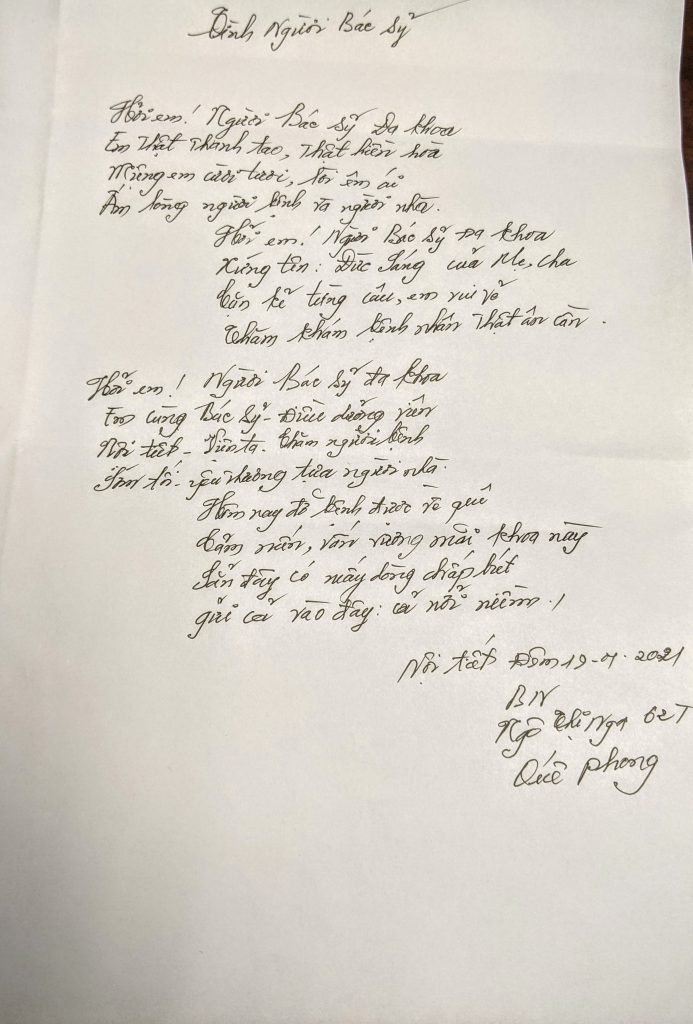 Tình Người Bác Sỹ
Hỡi em! Người Bác Sỹ Đa khoa
Em Thật Thanh tao, Thật hiền hoà
Miệng em cười tươi, lời êm ái
Ấm lòng người bệnh và người nhà.
Hỡi em! Người Bác Sỹ Đa khoa
Xứng tên: Đức Sáng của Mẹ, cha
Cặn kẽ từng câu, em vui vẻ
Thăm khám bệnh nhân Thật ân cần.
Hỡi em! Người Bác Sỹ đa khoa
Em cùng Bác Sỹ - Điều dưỡng viên
Nội tiết - Viện ta. Thăm người bệnh
Sớm tối - yêu thương tựa người nhà.
Hôm nay đỡ bệnh được về quê
Cảm mến, vấn vương mãi khoa này
Sẵn đây có mấy dòng chấp bút
gửi cả vào đây: cả nỗi niềm./
Nội tiết Đêm 19-4-2021
BN
Ngô Thị Nga 62T
Quế Phong